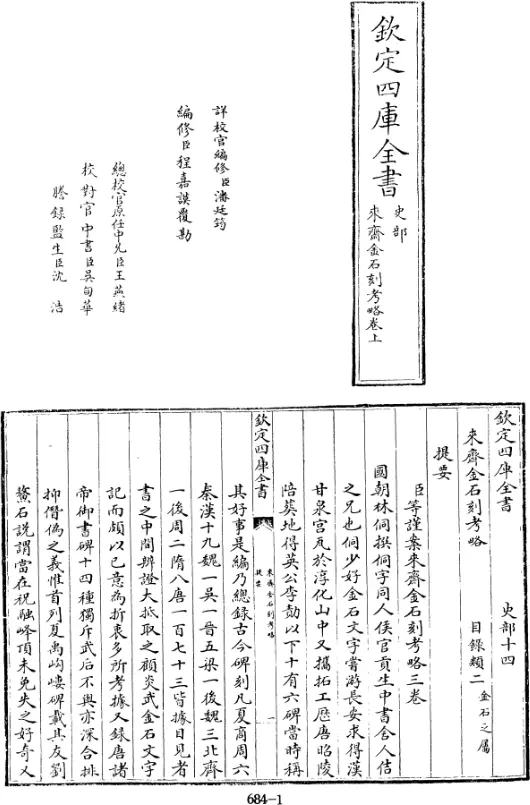 欽定四庫全書
史部
來齋金石刻考略卷上
詳校官編修臣潘廷筠
編修臣程嘉謨覆勘
總校官原任中允臣王燕緒
校對官中書臣吳甸華
謄錄監生臣沈浩
欽定四庫全書 史部十四
來齋金石刻考略 目錄類二 金石之屬
提要
臣等謹案來齋金石刻考略三卷
國朝林侗撰侗字同人侯官貢生中書舍人佶
之兄也侗少好金石文字嘗游長安求得漢
甘泉宮瓦於淳化山中又攜拓工歷唐昭陵
陪葬地得英公李勣以下十有六碑當時稱
欽定四庫全書
來齋金石刻考略
提要
一
其好事是編乃總錄古今碑刻凡夏商周六
秦漢十九魏一吳一晉五梁一後魏三北齊
一後周二隋八唐一百七十三皆據目見者
書之中間辨證大抵取之顧炎武金石文字
記而頗以己意為折衷多所考據又錄唐諸
帝御書碑十四種獨斥武后不與亦深合排
抑僭偽之義惟首列夏禹岣嶁碑載其友劉
鰲石說謂當在祝融峰頂未免失之好奇又
684-1